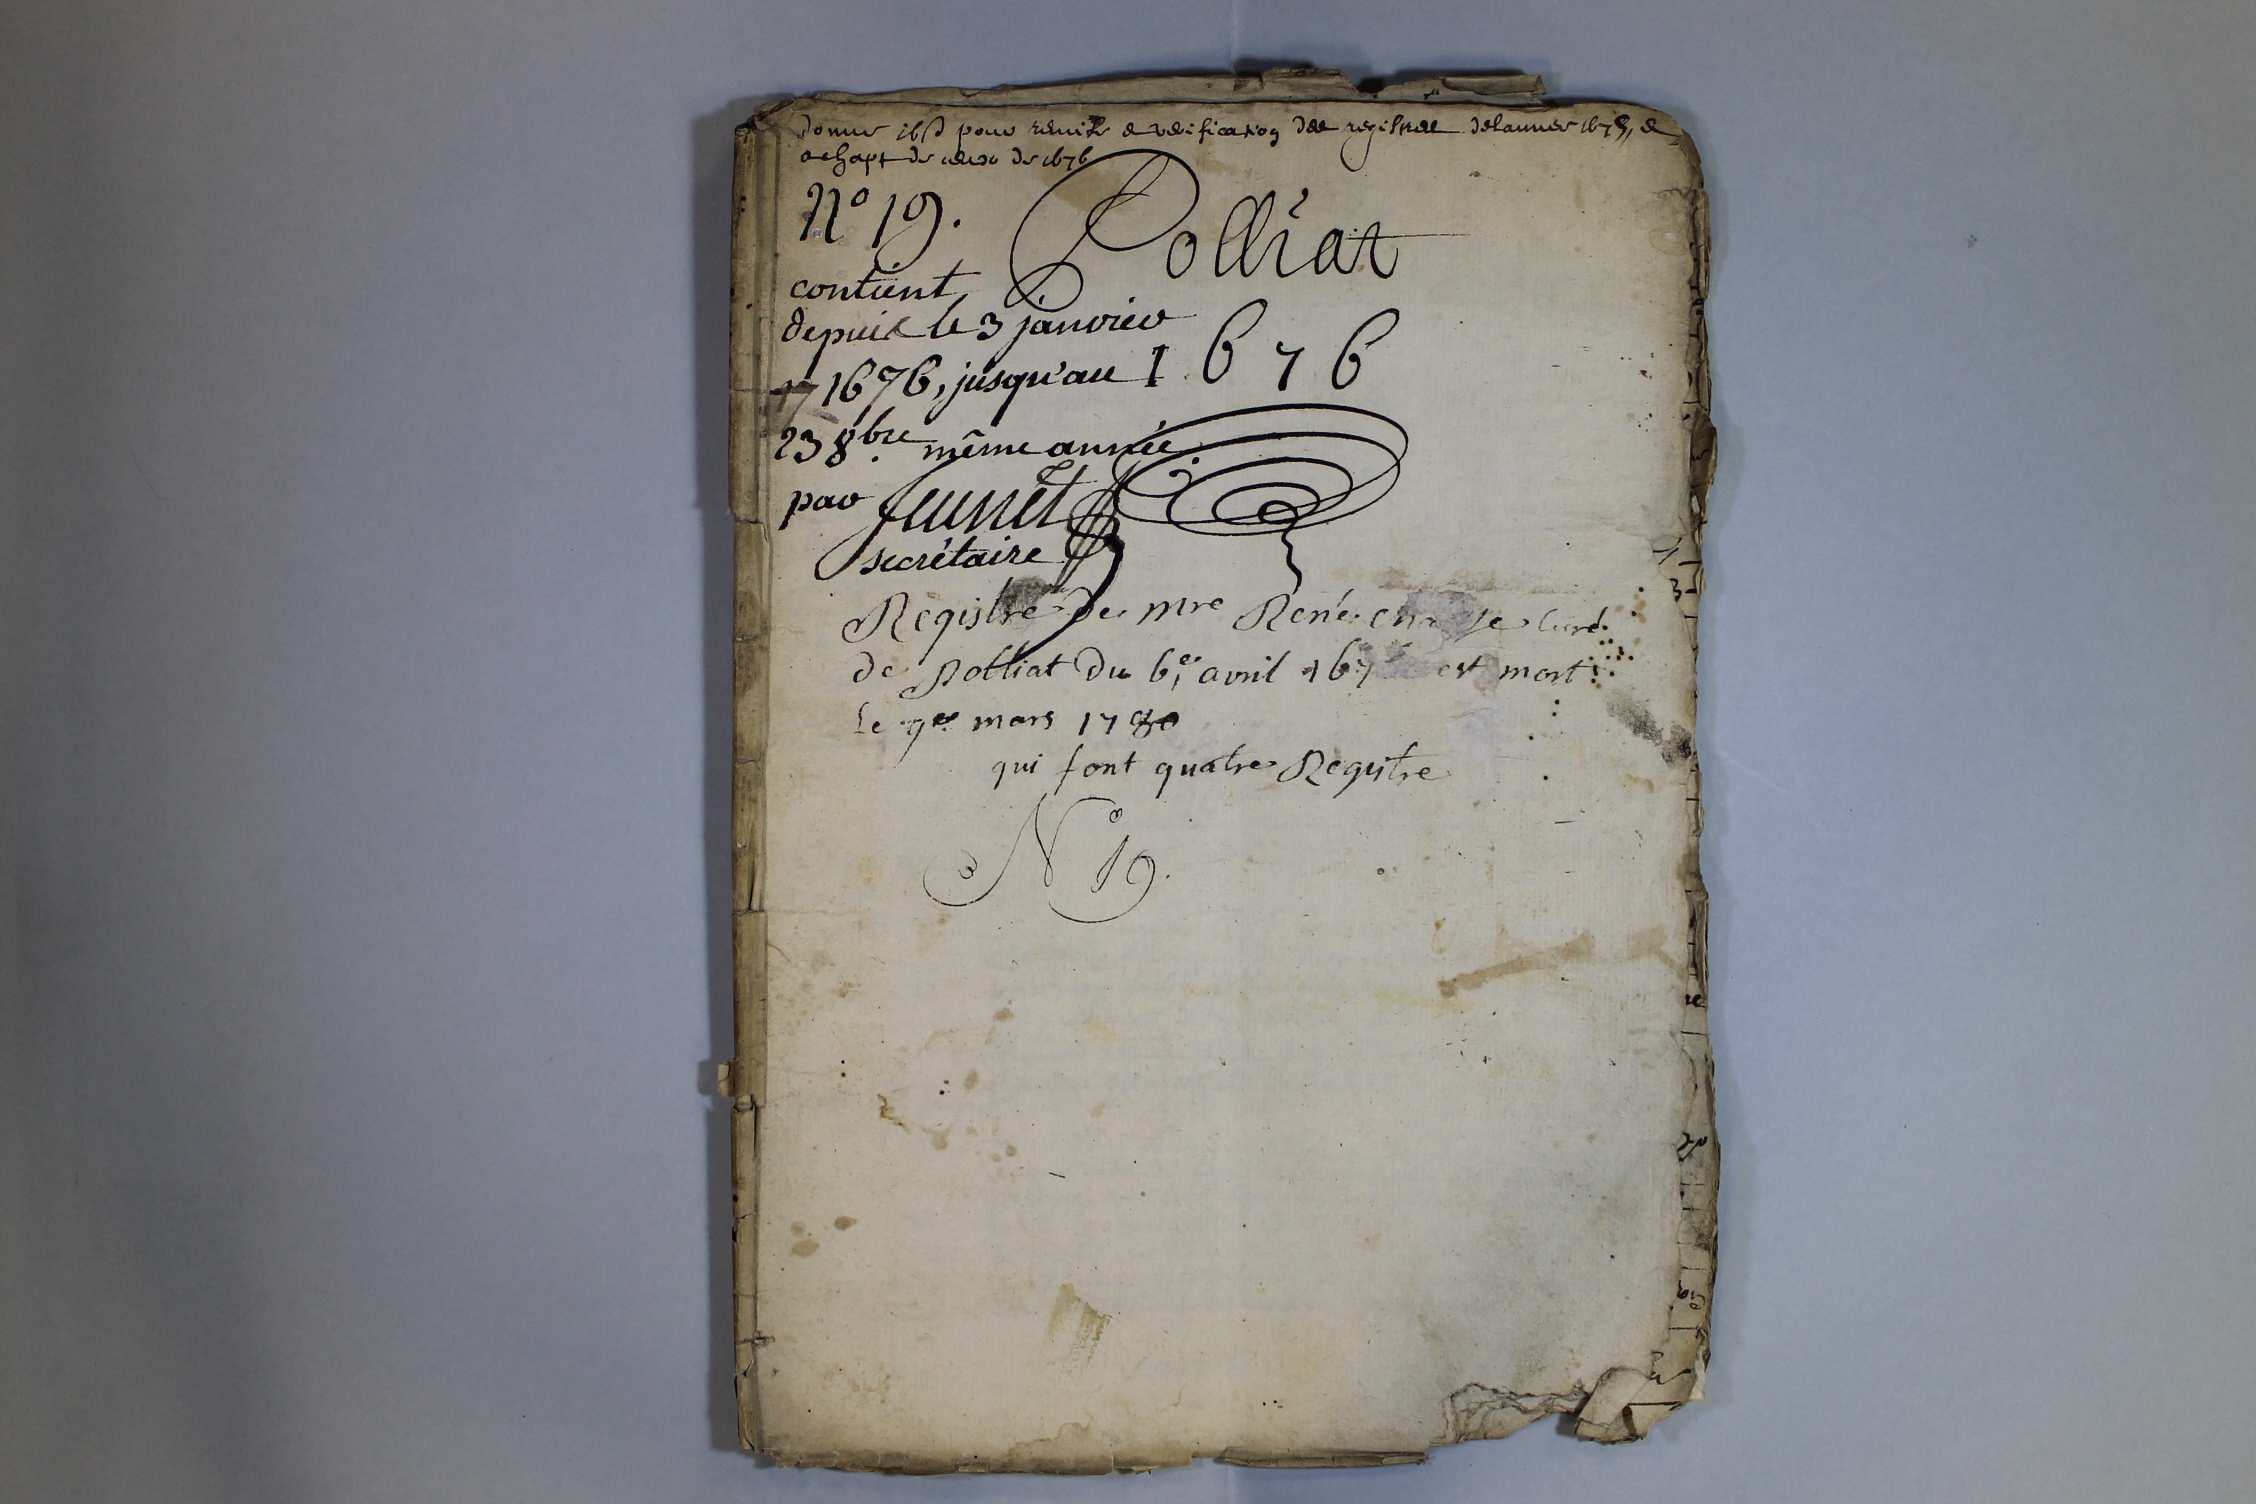 donne pour remise & verification des registres de lannee 1675, &
achapt de ceux de 1676
N.o 19. Polliat
contient
depuis le 3 janvier
1676, jusqu'au 1676
23 8.bre même année
par Junet
secrétaire
Registre de mre René Curé
de Polliat Du 6.e avril est mort
le 9.e mars
qui font quatre Registre
N.o 19.